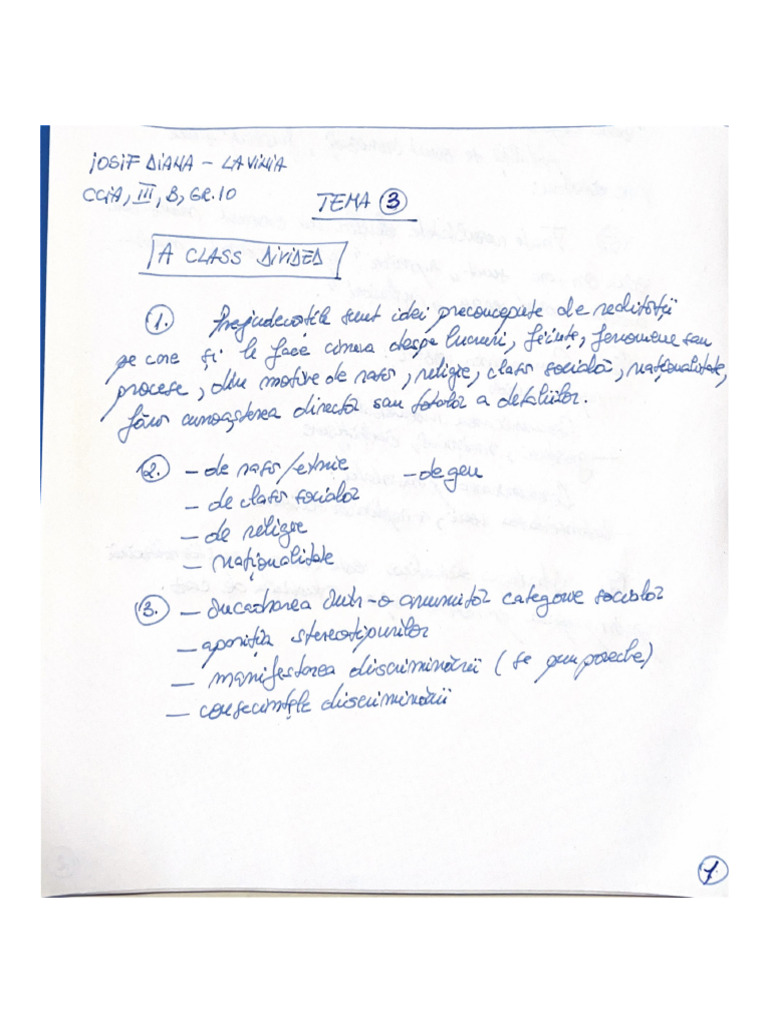 IOSIF DIANA - LAVINIA
CCIA, III, B, GR.10
TEMA 3
A CLASS DIVIDED
1. Prejudecățile sunt idei preconcepute ale realității
pe care și le face cineva despre lucruri, ființe, fenomene sau
procese, din motive de rasă, religie, clasă socială, naționalitate,
fără cunoașterea directă sau totală a detaliilor.
2. - de rasă/etnie - de gen
- de clasă socială
- de religie
- naționalitate
3. - încadrarea într-o anumită categorie socială
- apariția stereotipurilor
- manifestarea discriminării (pe)
- consecințele discriminării
1.